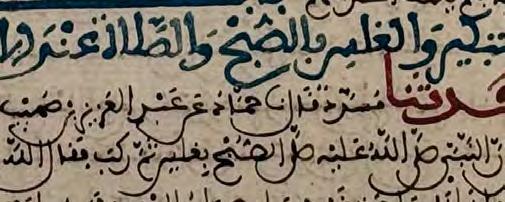 تبكير والغلس بالصبح والصلاة عند الا
حدثنا مسدد قال نا حماد عن عبد العزيز بن صهيب
ن النبي صلى الله عليه صلى الصبح بغلس ثم ركب فقال الله